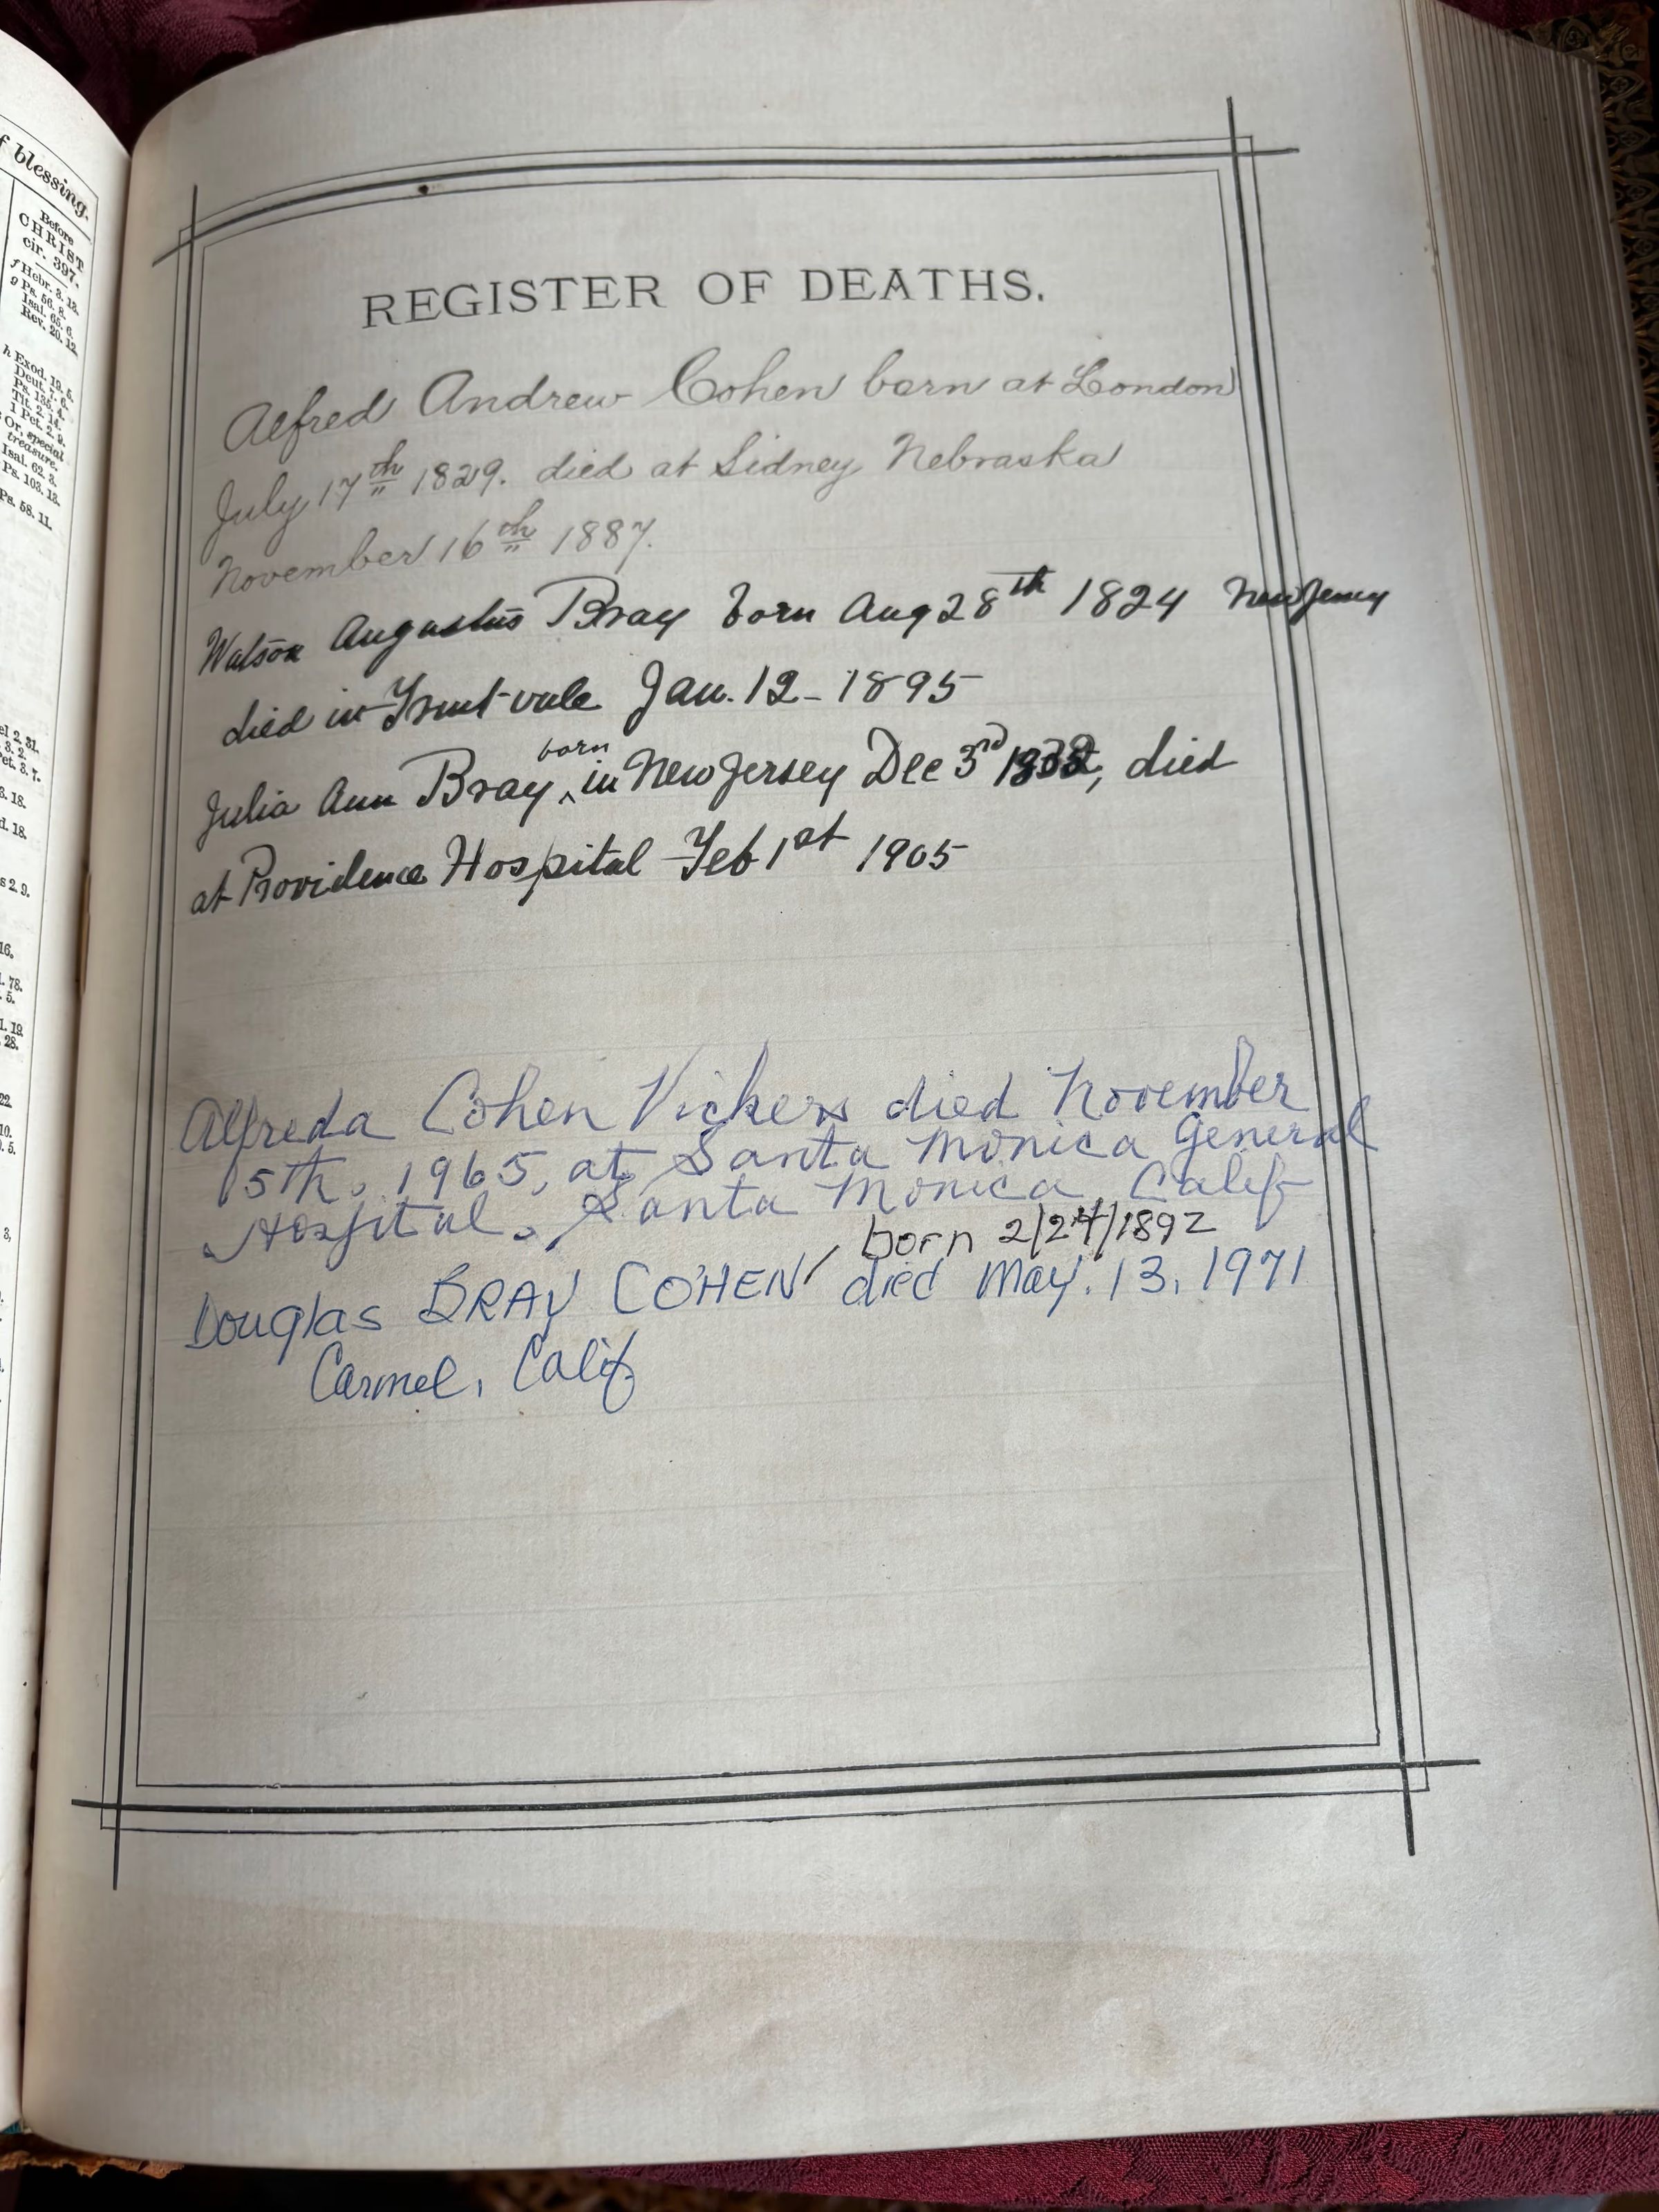 f blessing.
Before
CHRIST
cir. 397.
f Hebr. 3. 13.
g Ps. 56. 8.
Isai. 65. 6.
Rev. 20. 12.
h Exod. 19. 5.
Deut. 7. 6.
Ps. 135. 4.
Tit. 2. 14.
1 Pet. 2. 9.
Or, special
treasure.
Isai. 62. 3.
Ps. 103. 13.
Ps. 58. 11.
REGISTER OF DEATHS.
Alfred Andrew Cohen born at London
July 17th 1829. died at Sidney Nebraska
November 16th 1887.
Watson Augustus Bray born Aug 28th 1824 New Jersey
died in Fruit-vale Jan. 12 - 1895
Julia Ann Bray, born in New Jersey Dec 3rd, died
at Providence Hospital Feb 1st 1905
Alfreda Cohen Vickers died November
15th, 1965, at Santa Monica General
Hospital, Santa Monica, Calif
born 2/24/1892
Douglas BRAY COHEN died May. 13, 1971
Carmel, Calif